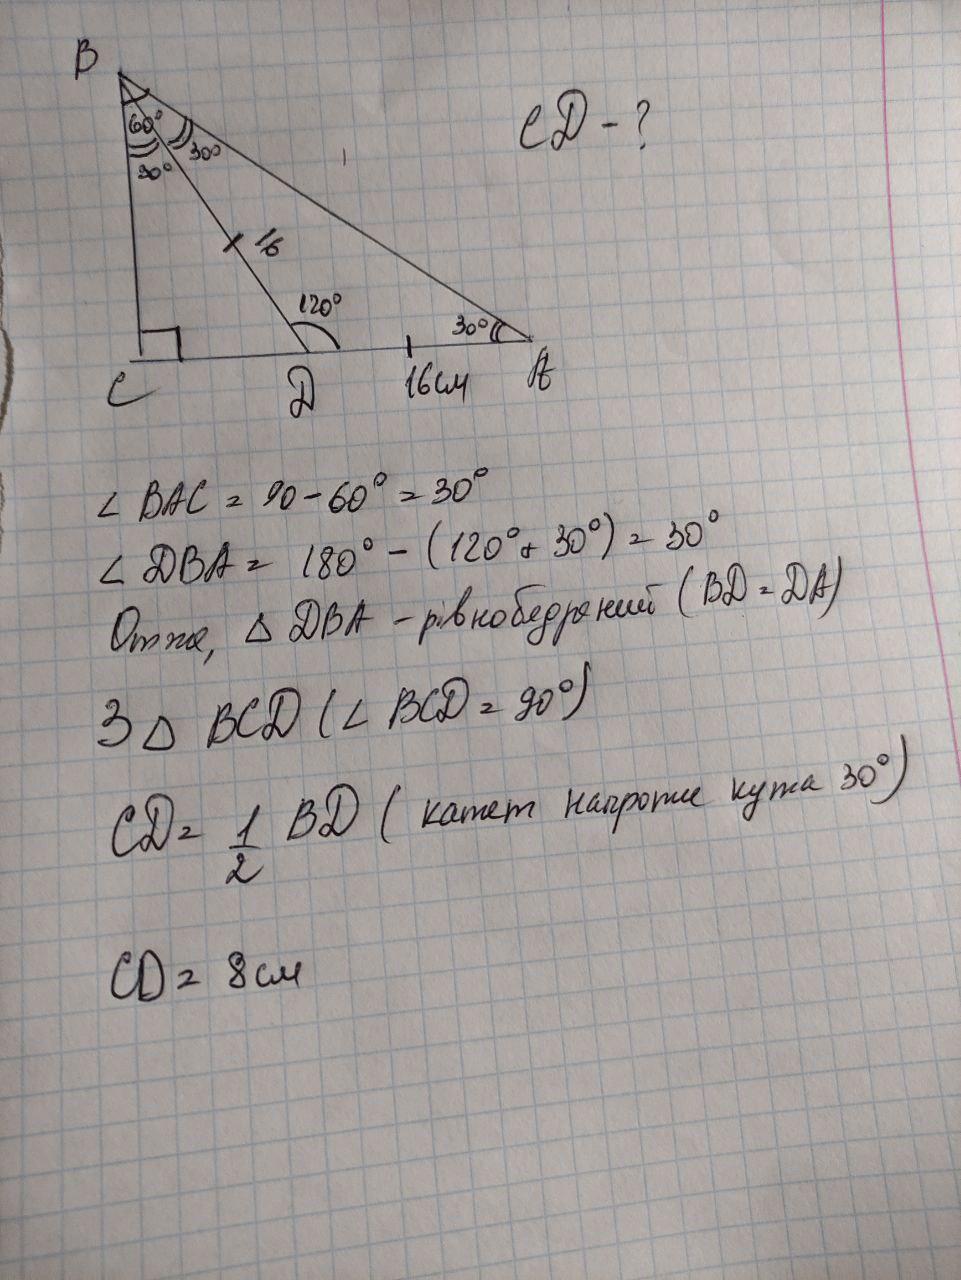 B
CD - ?
60°
30°
30°
16
120°
30°
C
D
16см
A
∠ BAC = 90 - 60° = 30°
∠ DBA = 180° - (120° + 30°) = 30°
Отже, △ DBA - рівнобедрений (BD = DA)
З △ BCD (∠ BCD = 90°)
CD = 1/2 BD (катет напроти кута 30°)
CD = 8см